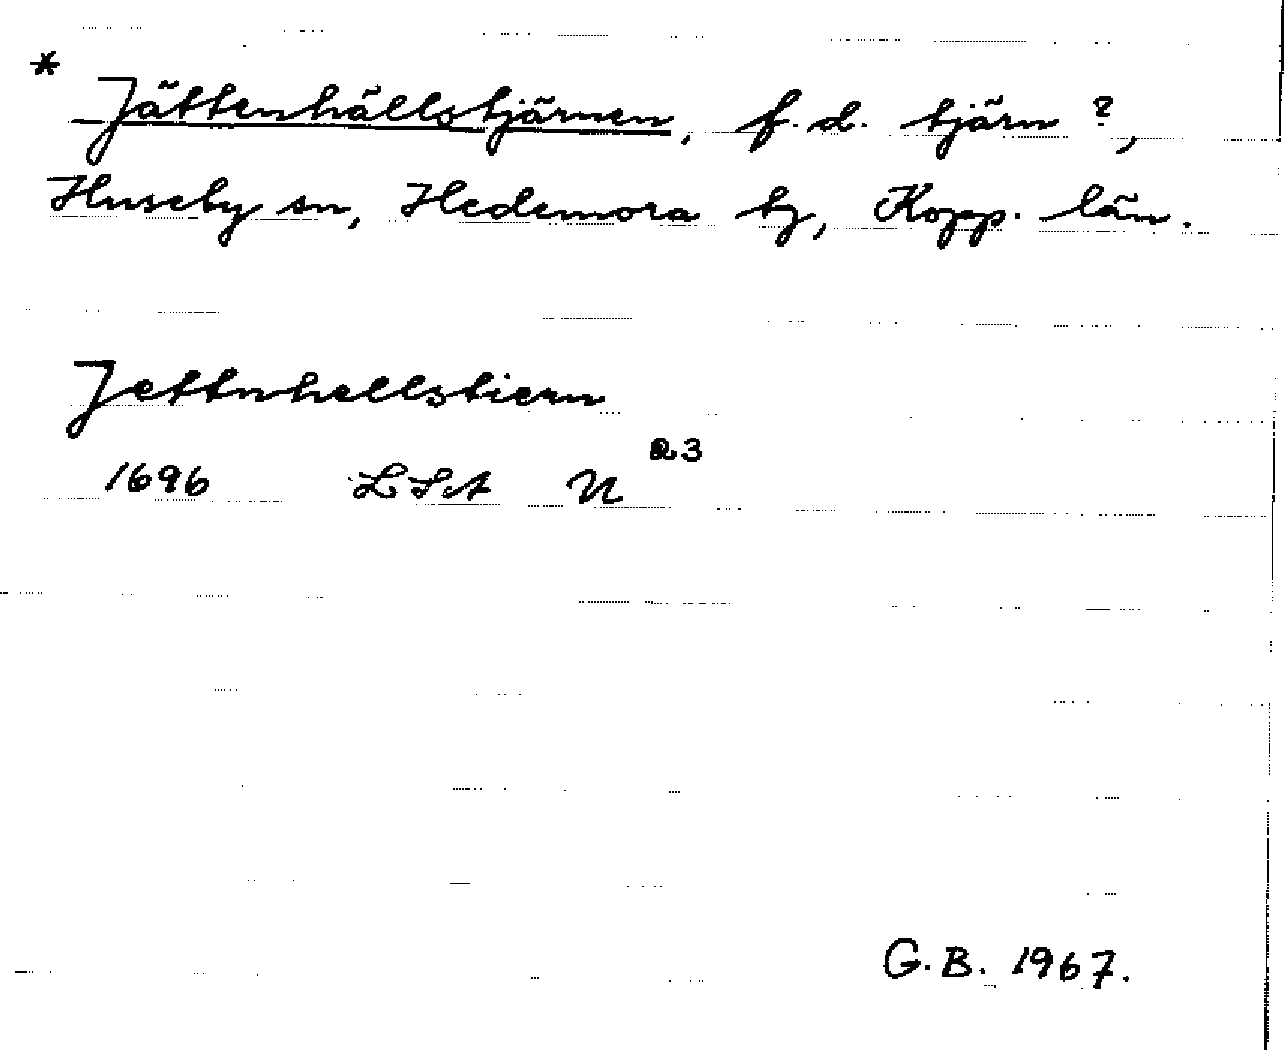 * Jättenhällstjärnen, f.d. tjärn?,
Huseby sn, Hedemora tg, Kopp. län.
Jettnhellstiern
1696 LSA U 23
G.B. 1967.